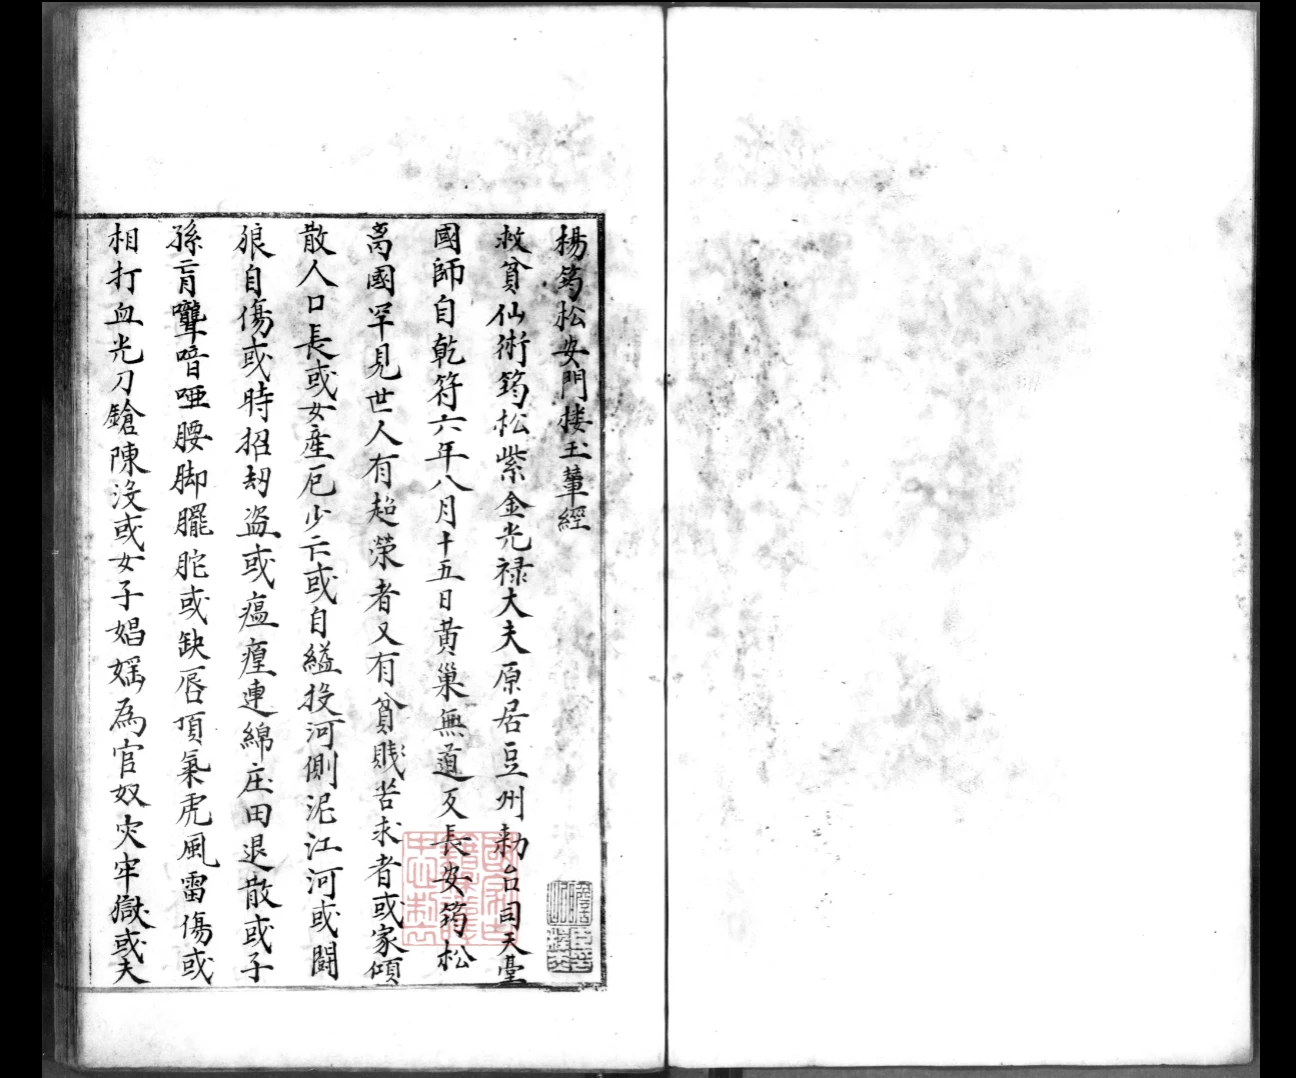 楊筠松安門楼玉輦經
救貧仙術筠松紫金光禄大夫原居豆州勅台司天臺
國師自乾符六年八月十五日黄巢無道反長安筠松
离國罕見世人有超荣者又有貧賎苦求者或家傾
散人口長或女産厄少亡或自縊投河側泥江河或鬪
狼自傷或時招刼盗或瘟瘽連綿庄田退散或子
孫肓聾喑啞腰脚矲胣或缺唇項氣虎風雷傷或
相打血光刀鎗陳没或女子娼媱為官奴灾牢獄或夫